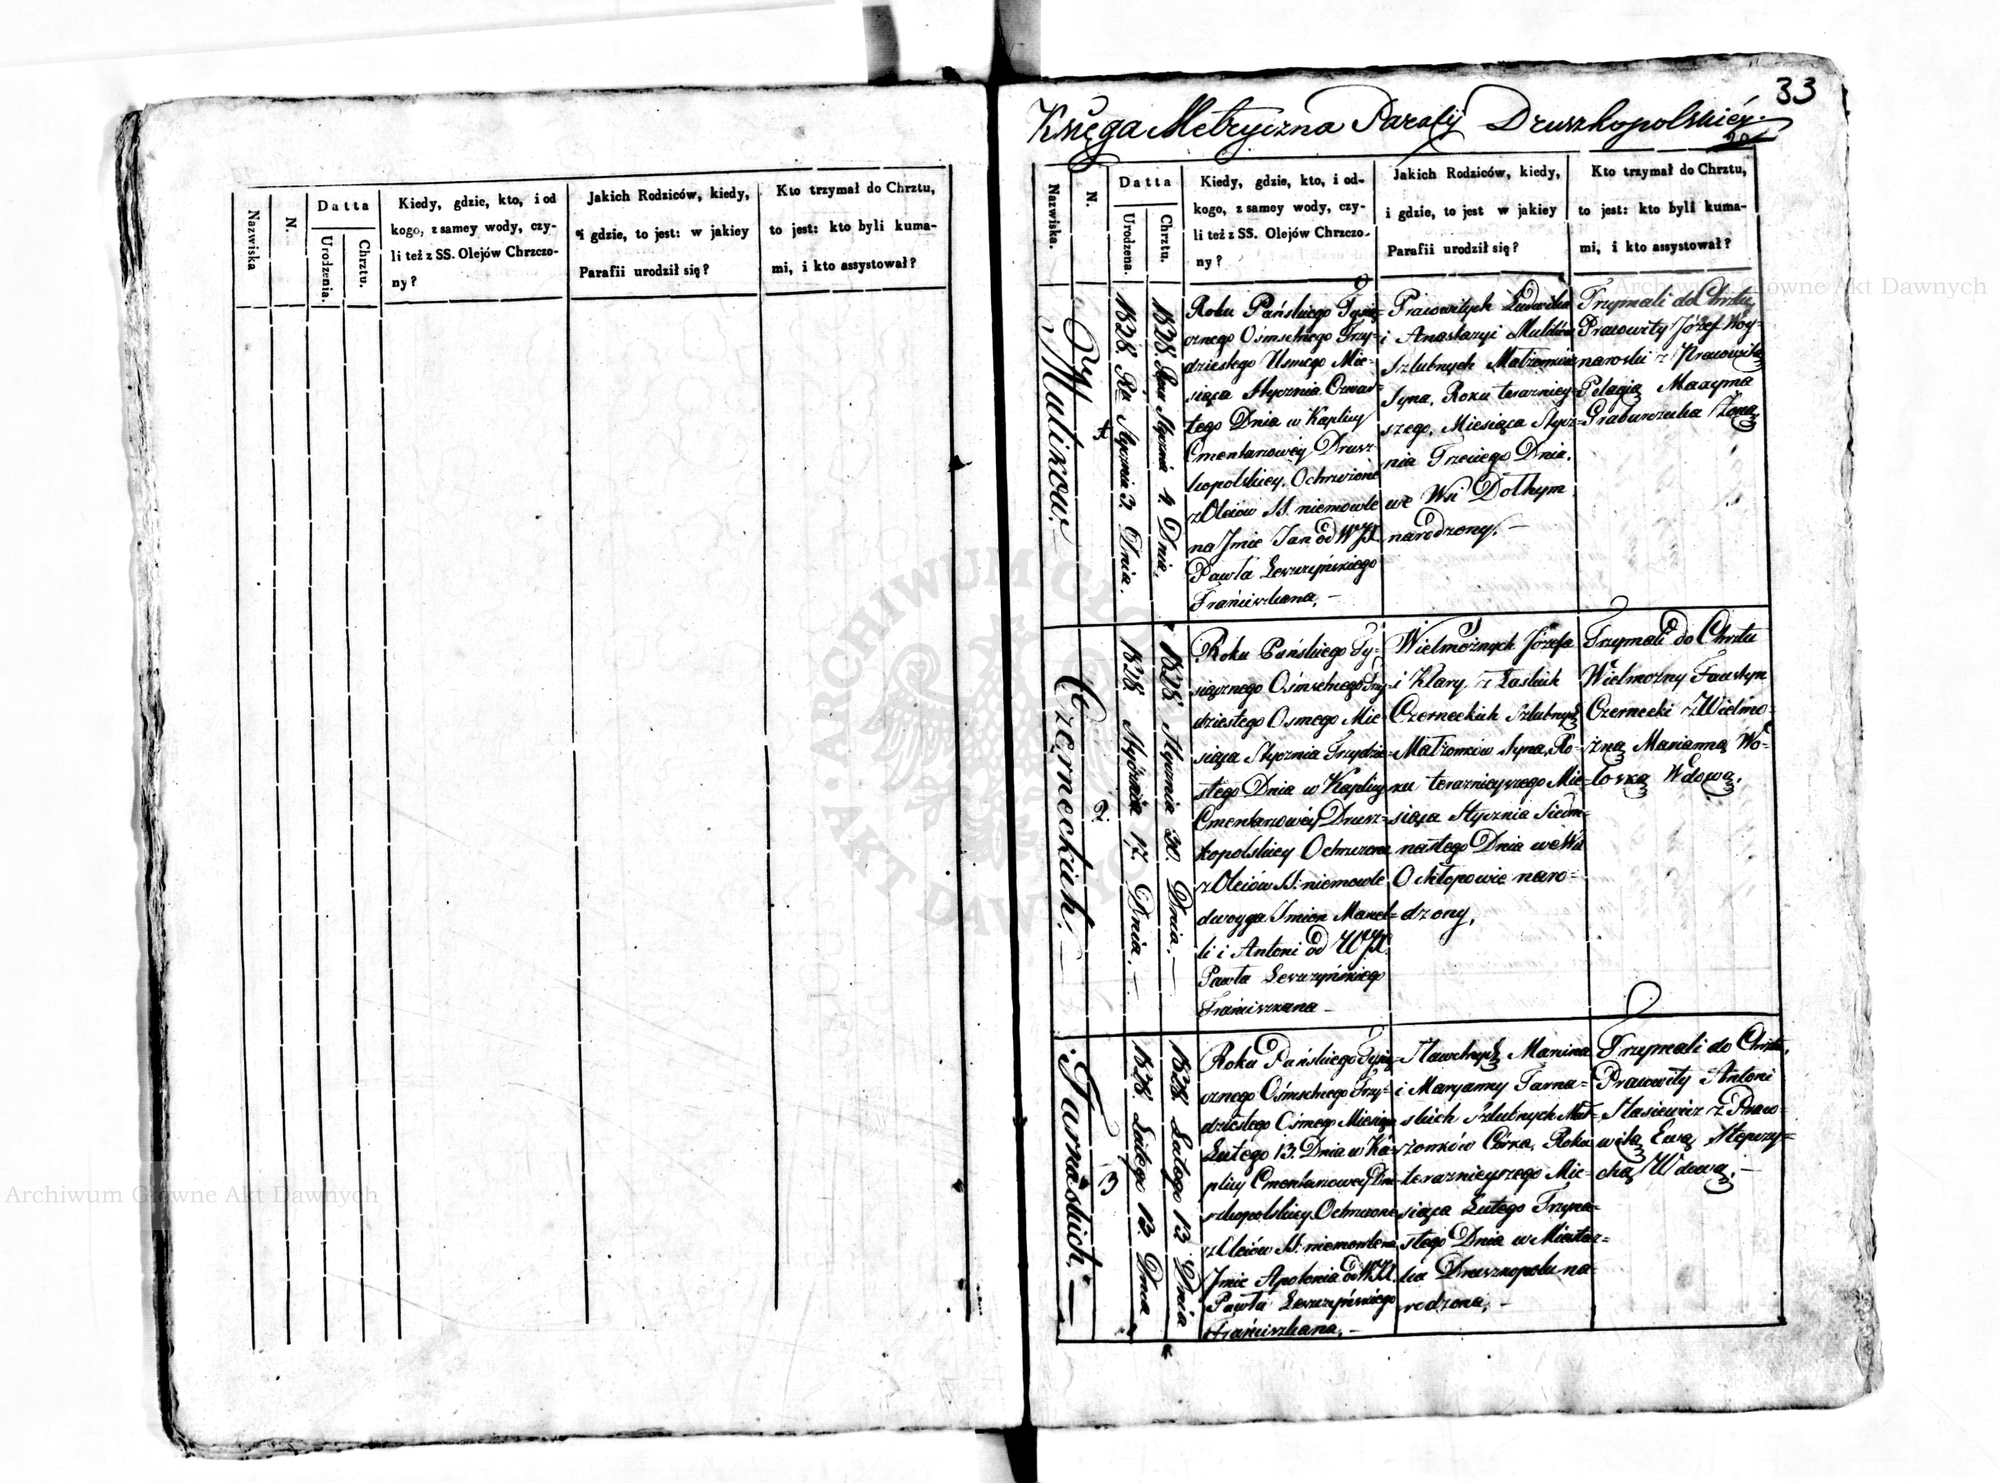 33
Księga Metryczna Parafij Druszkopolskiéy.
Nazwiska
N.
Datta
Urodzenia.
Chrztu.
Kiedy, gdzie, kto, i od
kogo, z samey wody, czy-
li też z SS. Olejów Chrzczo-
ny?
Jakich Rodziców, kiedy,
i gdzie, to jest: w jakiey
Parafii urodził się?
Kto trzymał do Chrztu,
to jest: kto byli kuma-
mi, i kto assystował?
Nazwiska.
N.
Datta
Urodzena.
Chrztu.
Kiedy, gdzie, kto, i od-
kogo, z samey wody, czy-
li też z SS. Olejów Chrzczo-
ny?
Jakich Rodziców, kiedy,
i gdzie, to jest w jakiey
Parafii urodził się?
Kto trzymał do Chrztu,
to jest: kto byli kuma-
mi, i kto assystował?
Mulików.
1828. Ru Stycznia 3. Dnia.
1828. Roku Stycznia 4. Dnia.
Roku Pańskiego Tysią-
cznego Ośmsetnego Trzy-
dziestego Usmego Mie-
siąca Stycznia Czwar-
tego Dnia w Kaplicy
Cmentarzowéy Drusz-
kopolskiey Ochrzczone
z Oleiów SS. niemowle
na Jmie Jan od WJX
Pawła Leszczyńskiego
Franciszkana. –
Pracowitych Ludwika
i Anastazyi Mulików
Szlubnych Małżonków
Syna, Roku terazniey-
szego, Miesiąca Stycz-
nia Trzeciego Dnia,
we Wsi Dolhym
narodzony. –
Trzymali do Chrztu
Pracowity Józef Woy-
naroski z Pracowitą
Pelagią Maxyma
Grabarczuka Żoną
Czerneckich. –
2.
1828 Stycznia 17. Dnia. –
1828 Stycznia 30. Dnia. –
Roku Pańskiego Ty-
siącznego Ośmsetnego Trzy-
dziestego Osmego Mie-
siąca Stycznia Trzydzie-
stego Dnia w Kaplicy
Cmentarzowéy Drusz-
kopolskiey Ochrzczone
z Oleiów SS. niemowle
dwoyga Jmion Marcel-
li i Antoni od WJX.
Pawła Leszczyńskiego
Franciszkana –
Wielmożnych Józefa
i Klary z Łaskich
Czerneckich Szlubnych
Małżonków Syna, Ro-
ku terazniejszego Mie-
siąca Stycznia Siedm-
nastego Dnia we Wsi
Ochłopowie naro-
dzony,
Trzymali do Chrztu
Wielmożny Faustyn
Czernecki z Wielmo-
żną Marianną Wo-
łoską Wdową.
Tarnaskich. –
3
1828. Lutego 13 Dnia
1828. Lutego 13 Dnia
Roku Pańskiego Tysią-
cznego Ośmsetnego Trzy-
dziestego Ósmego Miesiąca
Lutego 13. Dnia w Ka-
plicy Cmentarzowey Dru-
szkopolskiey Ochrzczone
z Oleiów SS. niemowle na
Jmie Apolonia od WJX.
Pawła Leszczyńskiego
Franciszkana. –
Sławetnych Marcina
i Maryanny Tarna-
skich Szlubnych Mał-
żonków Córka, Roku
teraznieyszego Mie-
siąca Lutego Trzyna-
stego Dnia w Miastecz-
ku Druszkopolu na-
rodzona. –
Trzymali do Chrztu,
Pracowity Antoni
Stasiewicz z Praco-
witą Ewą Stepczy-
chą Wdową. –
Archiwum Główne Akt Dawnych
Archiwum Główne Akt Dawnych
ARCHIWUM GŁÓWNE AKT DAWNYCH